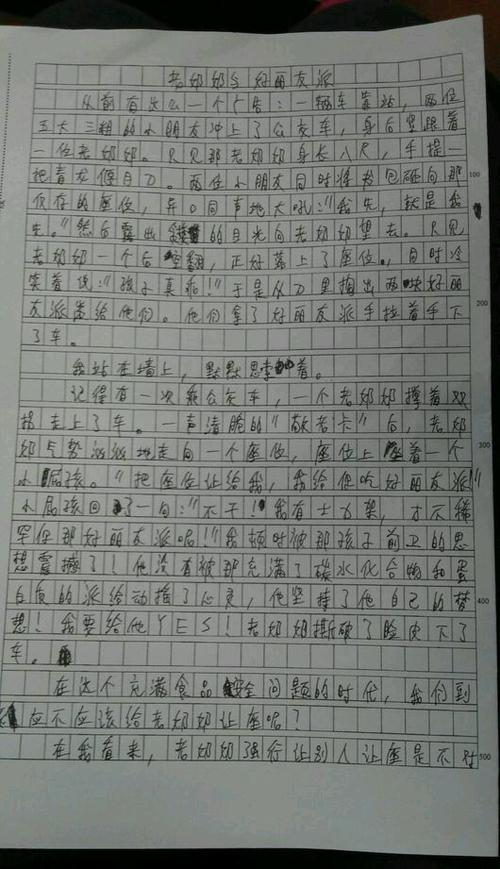 老奶奶与好丽友派
从前有这么一个广告：一辆车靠站，两位
五大三粗的小朋友冲上了公交车，身后紧跟着
一位老奶奶。只见那老奶奶身长八尺，手提一
把青龙偃月刀。两位小朋友同时将书包砸向那
仅存的座位，异口同声地大吼：“我先，就是我
先。”然后露出的目光向老奶奶望去。只见
老奶奶一个后空翻，正好落上了座位。，同时冷
笑着说：“孩子真乖！”于是从刀里掏出两块好丽
友派类给他们。他们拿了好丽友派手拉着手下
了车。
我站在墙上，默默思考着。
记得有一次乘公交车，一个老奶奶撑着双
拐走上了车。一声清脆的“敬老卡”后，老奶
奶气势汹汹地走向一个座位，座位上坐着一个
小屁孩。“把座位让给我，我给你吃好丽友派”
小屁孩回了一句：“不干！我有士力架，才不稀
罕你那好丽友派呢！”我顿时被那孩子前卫的思
想震撼了！他没有被那充满了碳水化合物和蛋
白质的派给动摇了心灵，他坚持了他自己的梦
想！我要给他YES！老奶奶撕破了脸皮下了
车。
在这个充满食品安全问题的时代，我们到
底应不应该给老奶奶让座呢？
在我看来，老奶奶强行让别人让座是不对
100
200
300
400
500